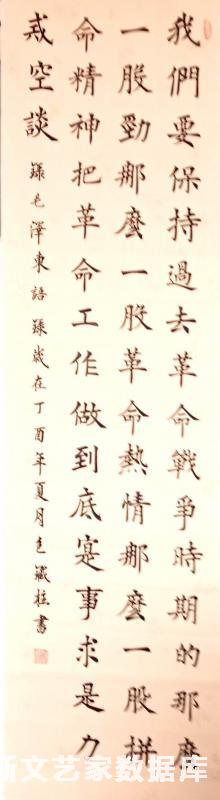 我們要保持過去革命戰爭時期的那麼
一股勁那麼一股革命熱情那麼一股拼
命精神把革命工作做到底寔事求是力
戒空談
錄毛澤東語錄歲在丁酉年夏月 柱書
文艺家数据库